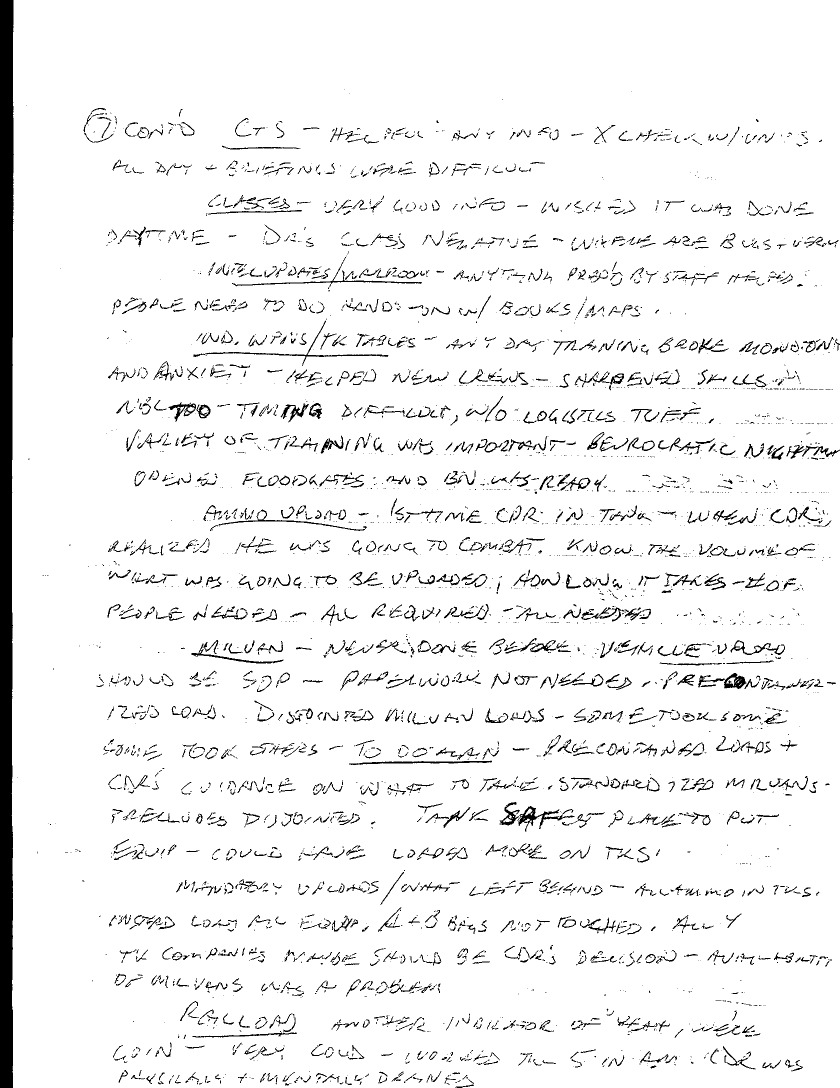 ⑦ CONT'D CTS - HELPFUL - ANY INFO - X CHECK W/UNITS.
ALL DAY + BRIEFINGS WERE DIFFICULT
CLASSES - VERY GOOD INFO - WISHED IT WAS DONE
DAYTIME - DR'S CLASS NEGATIVE - WHERE ARE BUGS + VERM
INTEL UPDATES/WARROOM - ANYTHING PREP'D BY STAFF HELPED.
PEOPLE NEED TO DO HANDS-ON W/ BOOKS/MAPS.
IND. WPNS/TK TABLES - ANY DAY TRAINING BROKE MONOTONY
AND ANXIETY - HELPED NEW CREWS - SHARPENED SKILLS
NBC TOO - TIMING DIFFICULT, W/O LOGISTICS TUFF.
VARIETY OF TRAINING WAS IMPORTANT - BEUROCRATIC NIGHTMA
OPENED FLOODGATES AND BN WAS READY
AMMO UPLOAD - 1ST TIME CDR IN TANK - WHEN CDR
REALIZED HE WAS GOING TO COMBAT. KNOW THE VOLUME OF
WHAT WAS GOING TO BE UPLOADED; HOW LONG IT TAKES - # OF
PEOPLE NEEDED - ALL REQUIRED - ALL NEEDED
MILVAN - NEVER DONE BEFORE. VEHICLE UPLOAD
SHOULD BE SOP - PAPERWORK NOT NEEDED. PRE-CONTAINER-
IZED LOAD. DISJOINTED MILVAN LOADS - SOME TOOK SOME
SOME TOOK OTHERS - TO DO AGAIN - PRECONTAINED LOADS +
CDR'S GUIDANCE ON WHAT TO TAKE. STANDARDIZED MILVANS -
PRECLUDES DISJOINTED. TANK SAFEST PLACE TO PUT
EQUIP - COULD HAVE LOADED MORE ON TKS.
MANDATORY UPLOADS/WHAT LEFT BEHIND - ALL AMMO IN TKS.
INSTEAD LOAD ALL EQUIP. A + B BAGS NOT TOUCHED. ALL 4
TK COMPANIES MAYBE SHOULD BE CDR'S DECISION - AVAILABILITY
OF MILVANS WAS A PROBLEM
RAILLOAD ANOTHER INDICATOR OF "YEAH, WE'RE
GOIN" - VERY COLD - WORKED TIL 5 IN AM. CDR WAS
PHYSICALLY + MENTALLY DRAINED